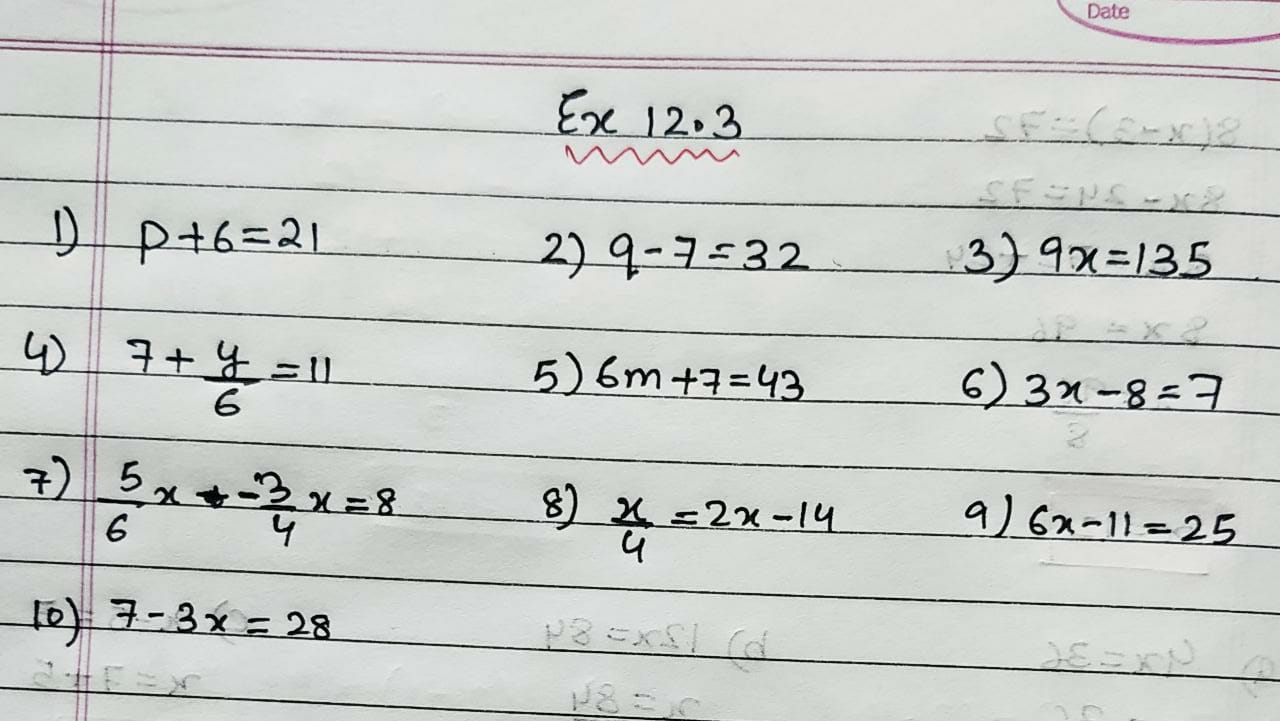 Date
Ex 12.3
1) p+6=21 2) q-7=32 3) 9x=135
4) 7+y/6=11 5) 6m+7=43 6) 3x-8=7
7) 5/6x-3/4x=8 8) x/4=2x-14 9) 6x-11=25
10) 7-3x=28